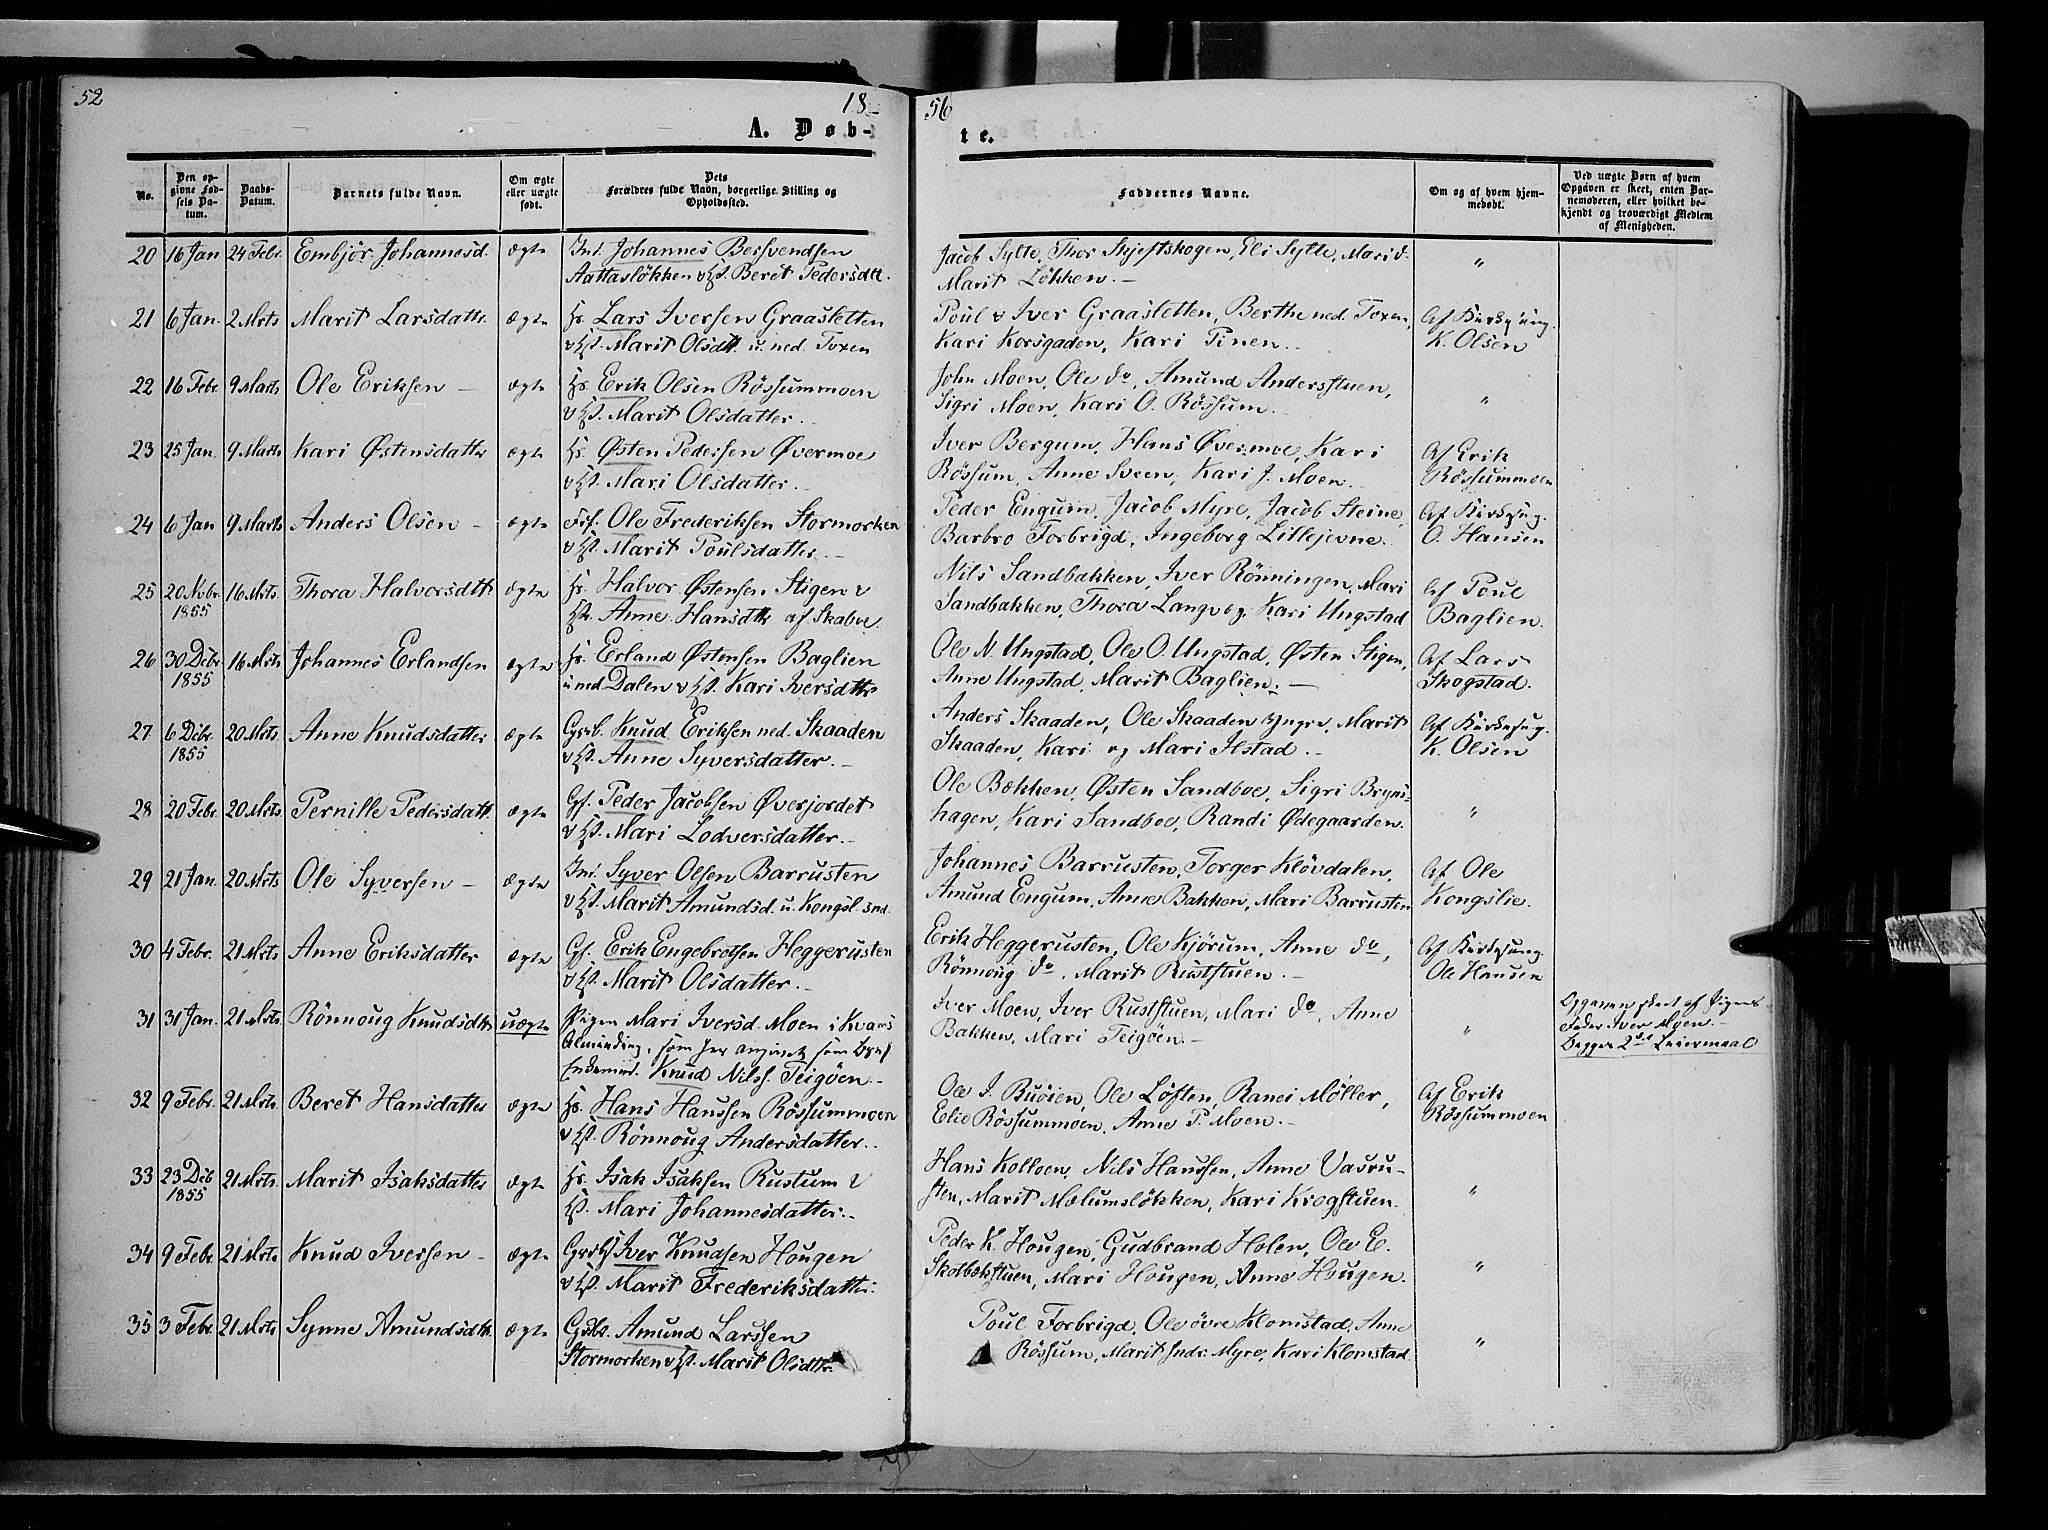 52
18
56
A. Døb-
te.
No.
Den op-
givne Fød-
sels Da-
tum.
Daabs-
Datum.
Barnets fulde Navn.
Om ægte
eller uægte
født.
Dets
Forældres fulde Navn, borgerlige Stilling og
Opholdssted.
Faddernes Navne.
Om og af hvem hjem-
medøbt.
Ved uægte Børn af hvem
Opgaven er skeet, enten Bar-
nemoderen, eller hvilket be-
kjendt og troværdigt Medlem
af Menigheden.
20 16 Jan 24 Febr. Embjör Johannesd. ægte Ind. Johannes Bersvendsen
Aattasløkken v Hst. Beret Pedersdtt.
Jacob Sylte, Thor Skjeftskogen, Eli Sylte, Mari do.
Marit Løkken. —
"
21 6 Jan. 2 Mrts Marit Larsdattr. ægte Hs. Lars Iversen Graasletten
v Hst. Marit Olsdtt. u. ned. Toxen
Poul v Iver Graasletten, Berthe ned. Toxen,
Kari Korsgaden, Kari Pinen.
Af Kirkesang.
K. Olsen
22 16 Febr 9 Marts Ole Eriksen — ægte Hs. Erik Olsen Rössummoen
v Hst. Marit Olsdatter.
John Moen, Ole do, Amund Andersstuen,
Sigri Moen, Kari O. Rössum.
"
23 25 Jan. 9 Marts Kari Østensdatter ægte Hs. Østen Pedersen Øvermoe
v Hst. Mari Olsdatter.
Iver Bergum, Hans Øvermoe, Kari
Rössum, Anne Sveen, Kari J. Moen.
Af Erik
Rössummoen
24 6 Jan 9 Marts Anders Olsen — ægte Ole Frederiksen Stormorken
v Hst. Marit Poulsdatter. —
Peder Engum, Jacob Myre, Jacob Steine,
Barbro Forbrigd, Ingeborg Lillejevne.
Af Kirkesang.
O. Hansen
25 20 Nvbr. 16 Mrts. Thora Halvorsdtt. ægte Hs. Halvor Østensen Stigen v
1855 Hst. Anne Hansdtr af Skabve.
Nils Sandbakken, Iver Rönningen, Mari
Sandbakken, Thora Langvog, Kari Ungstad
Af Poul
Baglien.
26 30 Dcbr 16 Mrts Johannes Erlandsen ægte Hs. Erland Østensen Baglien
1855 u ned. Dalen v Hst. Kari Iversdttr
Ole N. Ungstad, Ole O. Ungstad, Østen Stigen,
Anne Ungstad, Marit Baglien. —
Af Lars
Skogstad.
27 6 Dcbr. 20 Mrts. Anne Knudsdatter ægte Grb. Knud Eriksen ned. Skaaden
1855 v Hst. Anne Syversdatter. —
Anders Skaaden, Ole Skaaden yngre, Marit
Skaaden, Kari og Mari Ilstad. —
Af Kirkesng.
K. Olsen
28 20 Febr. 20 Mrts. Pernille Pedersdatt. ægte Gf. Peder Jacobsen Øverjordet
v Hst. Mari Lodversdatter. —
Ole Bækken, Østen Sandboe, Sigri Bryns-
hagen, Kari Sandboe, Randi Ødegaarden.
"
29 21 Jan. 20 Mrts Ole Syversen — ægte Ind. Syver Olsen Barrusten
v Hst. Marit Amundsd. u. Kongsl.end.
Johannes Barrusten, Torger Klövdalen,
Amund Engum, Anne Bakken, Mari Barrusten
Af Ole
Kongslie.
30 4 Febr. 21 Mrts Anne Eriksdatter ægte Gf. Erik Engebretsen Heggerusten
v Hst. Marit Olsdatter. —
Erik Heggerusten, Ole Kjörum, Anne do,
Rönnoug do, Marit Ruststuen. —
Af Kirkesang
Ole Hansen
31 31 Jan. 21 Mrts. Rönnoug Knudsdtr uægte Pigen Mari Iversd. Moen i Kvams
Alminding, som har angivet som Barnef
Knud Nilss. Teigöen. —
Iver Moen, Iver Ruststuen, Mari do, Anne
Bakken, Mari Teigöen. —
"
Opgaven skeet af Pigens
Fader Iver Moen. —
Begges 2det Leiermaal
32 9 Febr. 21 Mrts. Beret Hansdatter ægte Hs. Hans Hanssen Rössummoen
v Hst. Rönnoug Andersdatter. —
Ole J. Buöien, Ole Löften, Ranei Møller,
Elie Rössummoen, Anne P. Moen. —
Af Erik
Rössummoen
33 23 Dcb 21 Mrts. Marit Isaksdatter ægte Hs. Isak Isaksen Rustum v
1855 Hst. Mari Johannesdatter. —
Hans Kolloen, Nils Hanssen, Anne Vasru-
sten, Marit Mælumsløkken, Kari Krogstuen.
"
34 9 Febr. 21 Mrts Knud Iversen — ægte Iver Knudsen Hougen
v Hst. Marit Frederiksdatter.
Peder K. Hougen, Gudbrand Holen, Ole E.
Skolbækstuen, Mari Hougen, Anne Hougen.
"
35 3 Febr. 21 Mrts. Synne Amundsdtr. ægte Grdbr. Amund Larssen
Stormorken v Hst. Marit Olsdttr.
Poul Forbrigd, Ole övre Klomstad, Anne
Rössum, Marit Myre, Kari Klomstad.
"